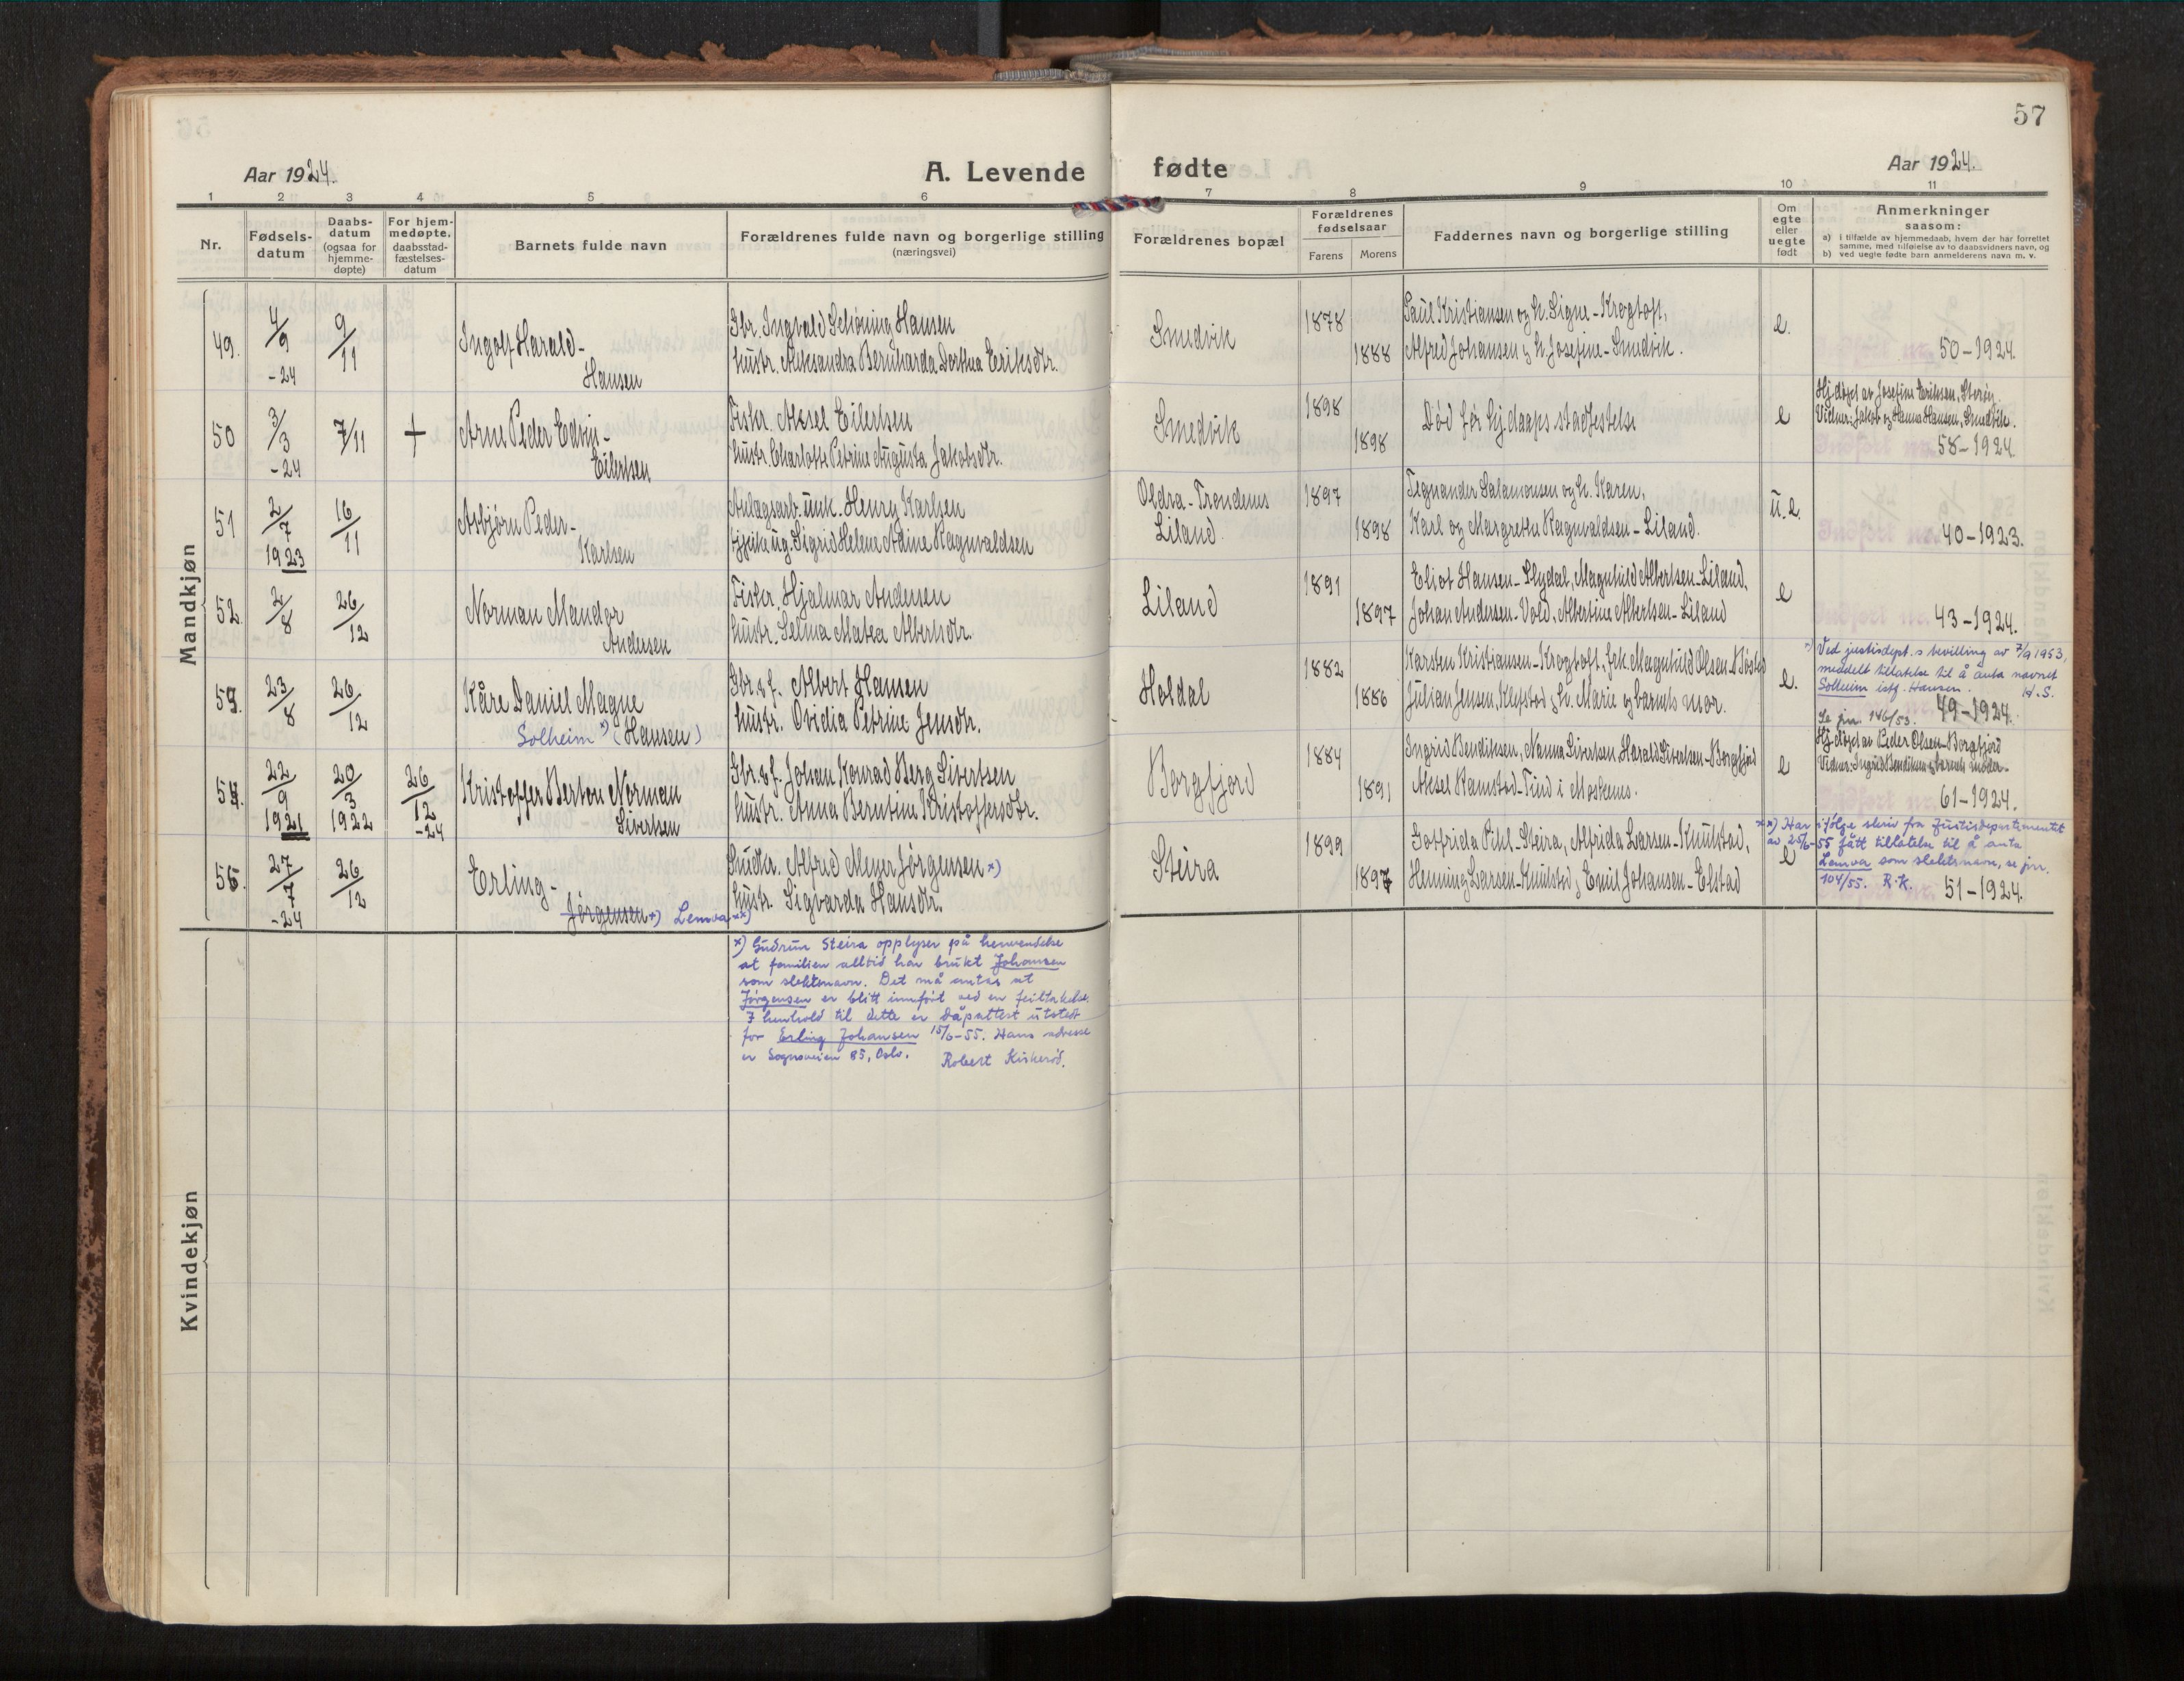 57
Aar 1924.
A. Levende
fødte
Aar 1924.
1 2 3 4 5 6 7 8 9 10 11
Nr.
Fødsels-
datum
Daabs-
datum
(ogsaa for
hjemme-
døpte)
For hjem-
medøpte,
daabsstad-
fæstelses-
datum
Barnets fulde navn
Forældrenes fulde navn og borgerlige stilling
(næringsvei)
Forældrenes bopæl
Forældrenes
fødselsaar
Farens Morens
Faddernes navn og borgerlige stilling
Om
egte
eller
uegte
født
Anmerkninger
saasom:
a) i tilfælde av hjemmedaab, hvem der har forrettet
samme, med tilføielse av to daabsvidners navn, og
b) ved uegte fødte barn anmelderens navn m. v.
Mandkjøn
49.
4/9
-24
9/11
Ingolf Harald-
Hansen
Gbr. Ingvald Schøning Hansen
hustr. Aleksandra Bernharda Dorthea Eriksdtr.
Smedvik
1878
1888
Paul Kristiansen og h. Signe - Krogtoft,
Alfred Johansen og h. Josefine - Smedvik.
e.
50-1924.
50
3/3
-24
7/11
+
Arne Peder Edvin-
Eilertsen
Fiskr. Aksel Eilertsen
hustr. Charlotte Petrine Augusta Jakobsdtr.
Smedvik
1898
1898
Død før hj.daaps stadfestelse
e
Hj.døpt av Josefine Eriksen,
Vidner: Jakob og Hanna Hansen, Smedvik.
58-1924.
51
2/7
1923
16/11
Asbjørn Peder-
Karlsen
Anlagsarb. unk. Henry Karlsen
pike ug. Sigrid Helene Adine Ragnvaldsen
Oldra - Trondenes
Liland.
1897
1898
Tegnander Salamonsen og h. Karen,
Karl og Margrethe Ragnvaldsen - Liland.
u.e.
40-1923.
52.
2/8
26/12
Norman Mandor
Andersen
Fiskr. Hjalmar Andersen
hustr. Selma Matea Albertsdtr.
Liland
1891
1897
Eliot Hansen - Slydal, Magnhild Albertsen - Liland,
Johan Andersen - Vold, Albertine Albertsen - Liland
e
43-1924.
53.
23/8
26/12
Kåre Daniel Magne
Solheim *) (Hansen)
Gbr. & f. Albert Hansen
hustr. Ovidia Petrine Jensdtr.
Holdal
1882
1886
Karsten Kristiansen - Krogtoft, frk. Magnhild Olsen -
Julian Jensen, Klepstad og h. Marie og barnets mor.
e.
*) Ved justisdept.s bevilling av 7/9 1953,
meddelt tillatelse til å anta navnet
Solheim istf. Hansen. H.S.
Se jnr. 146/53. 49-1924.
54.
22/9
1921
20/3
1922
26/12
-24
Kristoffer Berton Norman
Sivertsen
Gbr. & f. Johan Konrad Berg Sivertsen
hustr. Anna Berntine Kristoffersdtr.
Borgfjord
1884
1891
Ingrid Bendiksen, Nanna Sivertsen, Harald Sivertsen - Borgfjord
Aksel Ramstad - Tind i Moskenes.
e
Hj.døpt av Peder Olsen - Borgfjord
Vidner: Ingrid Bendiksen og barnets moder.
61-1924.
55.
27/7
-24
26/12
Erling-
Jørgensen +) Lemva **)
Småbr. Alfred Meyer Jørgensen *)
hustr. Sigvarda Hansdtr.
Steira
1899
1897
Gotfrida Pihl - Steira, Alfrida Larsen - Knutstad,
Henning Larsen - Knutstad, Emil Johansen - Elstad
e
**) Har ifølge skriv fra Justisdepartementet
av 25/6-55 fått tillatelse til å anta
Lemva som slektsnavn, se jnr.
104/55. R.K. 51-1924.
*) Gudrun Steira opplyser på henvendelse
at familien alltid har brukt Johansen
som slektsnavn. Det må antas at
Jørgensen er blitt innført ved en feiltakelse.
I henhold til dette er dåpsattest utstedt
for Erling Johansen 15/6-55. Hans adresse
er Sognsveien 85, Oslo. Robert Kiskerød.
Kvindekjøn